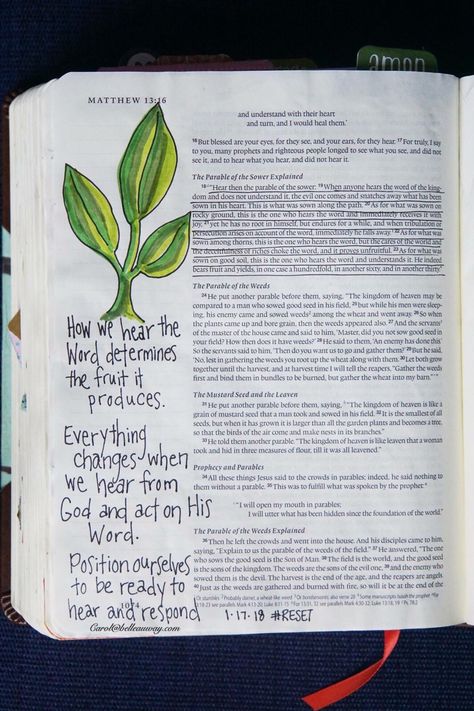 amen
MATTHEW 13:16
and understand with their heart
and turn, and I would heal them.'
16 But blessed are your eyes, for they see, and your ears, for they hear. 17 For truly, I say
to you, many prophets and righteous people longed to see what you see, and did not
see it, and to hear what you hear, and did not hear it.
The Parable of the Sower Explained
18 "Hear then the parable of the sower: 19 When anyone hears the word of the king-
dom and does not understand it, the evil one comes and snatches away what has been
sown in his heart. This is what was sown along the path. 20 As for what was sown on
rocky ground, this is the one who hears the word and immediately receives it with
joy, 21 yet he has no root in himself, but endures for a while, and when tribulation or
persecution arises on account of the word, immediately he falls away. 22 As for what was
sown among thorns, this is the one who hears the word, but the cares of the world and
the deceitfulness of riches choke the word, and it proves unfruitful. 23 As for what was
sown on good soil, this is the one who hears the word and understands it. He indeed
bears fruit and yields, in one case a hundredfold, in another sixty, and in another thirty."
The Parable of the Weeds
24 He put another parable before them, saying, "The kingdom of heaven may be
compared to a man who sowed good seed in his field, 25 but while his men were sleep-
ing, his enemy came and sowed weeds among the wheat and went away. 26 So when
the plants came up and bore grain, then the weeds appeared also. 27 And the servants
of the master of the house came and said to him, 'Master, did you not sow good seed in
your field? How then does it have weeds?' 28 He said to them, 'An enemy has done this.'
So the servants said to him, 'Then do you want us to go and gather them?' 29 But he said,
'No, lest in gathering the weeds you root up the wheat along with them. 30 Let both grow
together until the harvest, and at harvest time I will tell the reapers, "Gather the weeds
first and bind them in bundles to be burned, but gather the wheat into my barn."'"
The Mustard Seed and the Leaven
31 He put another parable before them, saying, "The kingdom of heaven is like a
grain of mustard seed that a man took and sowed in his field. 32 It is the smallest of all
seeds, but when it has grown it is larger than all the garden plants and becomes a tree,
so that the birds of the air come and make nests in its branches."
33 He told them another parable. "The kingdom of heaven is like leaven that a woman
took and hid in three measures of flour, till it was all leavened."
Prophecy and Parables
34 All these things Jesus said to the crowds in parables; indeed, he said nothing to
them without a parable. 35 This was to fulfill what was spoken by the prophet:
"I will open my mouth in parables;
I will utter what has been hidden since the foundation of the world."
The Parable of the Weeds Explained
36 Then he left the crowds and went into the house. And his disciples came to him,
saying, "Explain to us the parable of the weeds of the field." 37 He answered, "The one
who sows the good seed is the Son of Man. 38 The field is the world, and the good seed
is the sons of the kingdom. The weeds are the sons of the evil one, 39 and the enemy who
sowed them is the devil. The harvest is the end of the age, and the reapers are angels.
40 Just as the weeds are gathered and burned with fire, so will it be at the end of the
How we hear the
Word determines
the fruit it
produces.
Everything
changes when
we hear from
God and act on His
Word.
Position ourselves
to be ready to
hear and respond
1·17·18 #RESET
Carol@belleauway.com